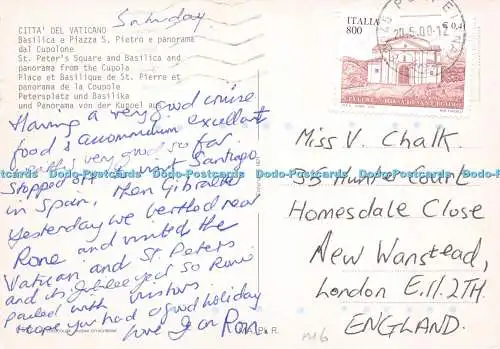 Saturday
CITTA' DEL VATICANO
Basilica e Piazza S. Pietro e panorama
dal Cupolone
St. Peter's Square and Basilica and
panorama from the Cupola
Place et Basilique de St. Pierre et
panorama de la Coupole
Petersplatz und Basilika
und Panorama von der Kugoel aus
Having a very good cruise
food & accommodation excellent
weather very good so far
Stopped off to visit Santiago
in Spain, then Gibraltar
Yesterday we berthed near
Rome and visited the
Vatican and St. Peters
and its Jubilee year so Rome
packed with visitors
Hope you had a good holiday
love Ron
ITALIA
800
Miss V. Chalk.
35 Hunter Court
Homesdale Close
New Wanstead,
London E.11.2TH.
ENGLAND.
Dodo-Postcards Dodo-Postcards Dodo-Postcards Dodo-Postcards Dodo-Postcards